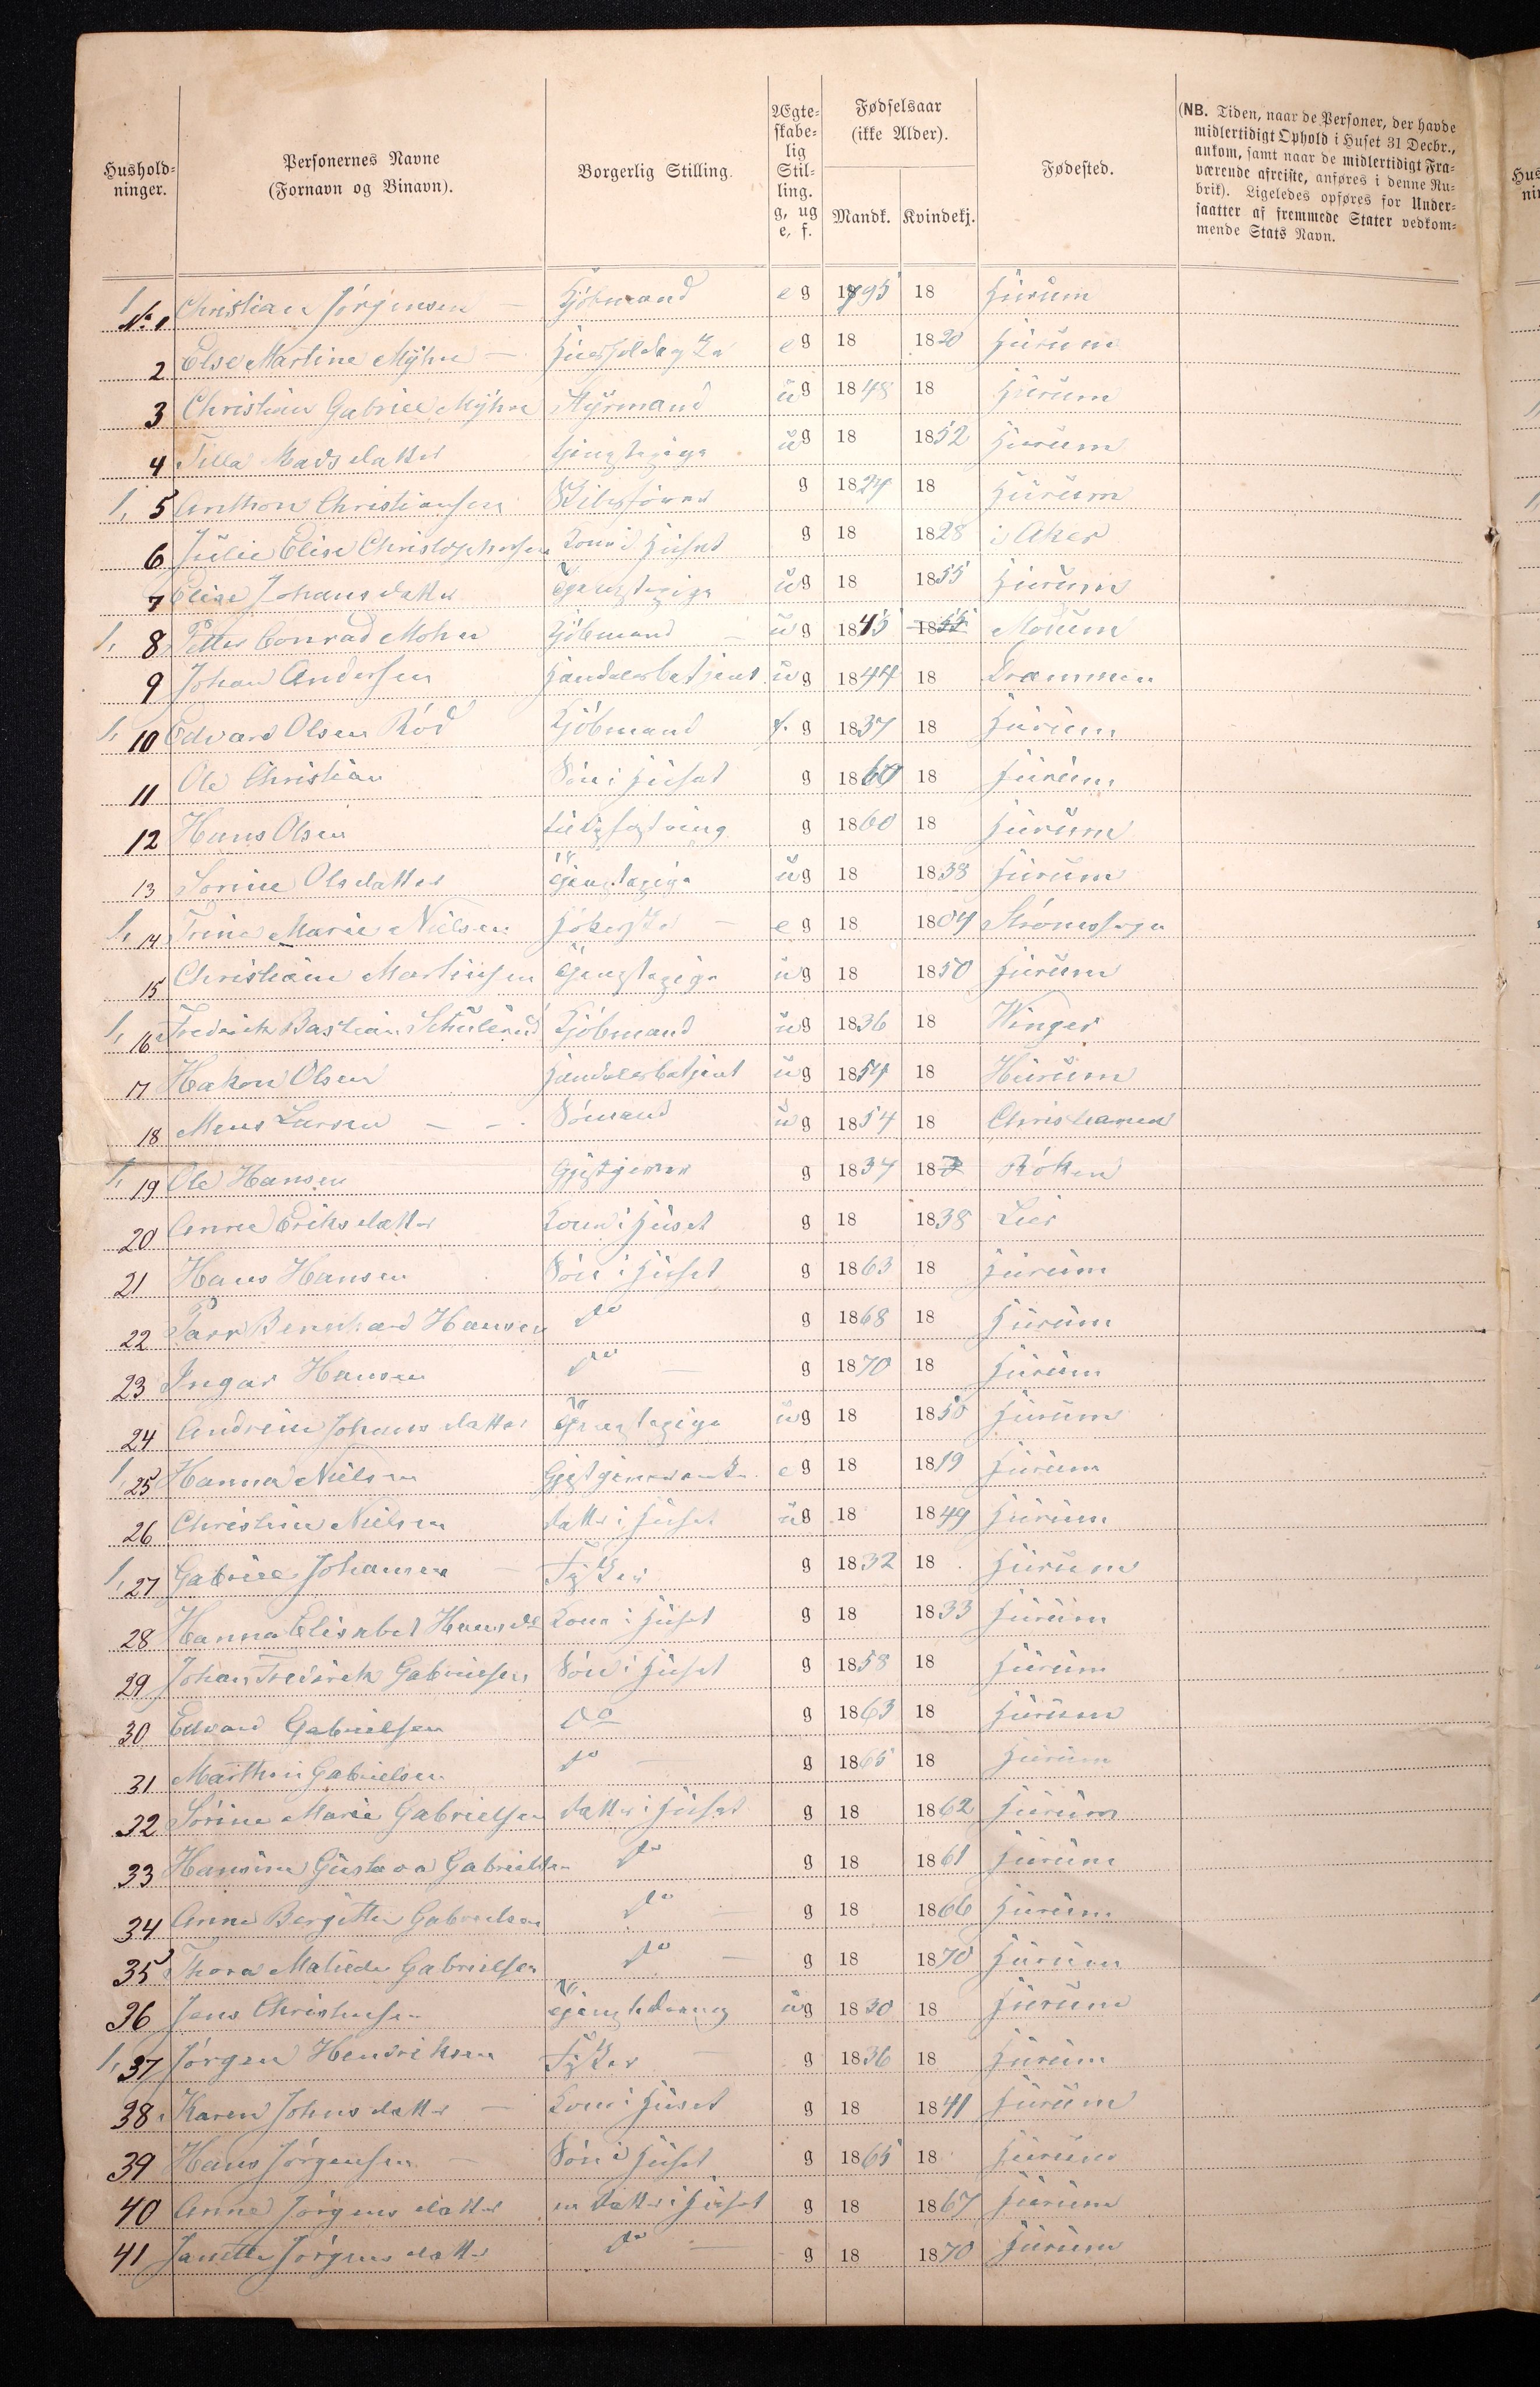 Hushold-
ninger.
Personernes Navne
(Fornavn og Binavn).
Borgerlig Stilling.
Ægte-
skabe-
lig
Stil-
ling.
g, ug
e, f.
Fødselsaar
(ikke Alder).
Mandk. Kvindekj.
Fødested.
(NB. Tiden, naar de Personer, der havde
midlertidigt Ophold i Huset 31 Decbr.,
ankom, samt naar de midlertidigt Fra-
værende afreiste, anføres i denne Ru-
brik). Ligeledes opføres for Under-
saatter af fremmede Stater vedkom-
mende Stats Navn.
1, No 1 Christian Jörgensen — Kjöbmand e g 1795 18 Hurum
2 Else Martine Myhre — e g 18 1820 Hurum
3 Christian Gabriel Myhre Styrmand ug 1848 18 Hurum
4 Madsdatter tjenstepige ug 18 1852 Hurum
1, 5 Anthon Christiansen Skibsförer g 1824 18 Hurum
6 Julie Elise Christophersen Kone i Huset g 18 1828 i Aker
7 Elise Johansdatter Tjenstepige ug 18 1855 Hurum
1, 8 Petter Conrad Mohn Kjöbmand ug 1845 1855 Modum
9 Johan Andersen Handelsbetjent ug 1844 18 Drammen
1, 10 Edvard Olsen Röd Kjöbmand f. g 1837 18 Hurum
11 Ole Christian Sön i Huset g 1860 18 Hurum
12 Hans Olsen g 1860 18 Hurum
13 Sorine Olsdatter Tjenstepige ug 18 1838 Hurum
1, 14 Trine Marie Nielsen e g 18 1804 Strömsso
15 Christiane Martinsen Tjenstepige ug 18 1850 Hurum
1, 16 Fredrick Bastian Schulerud Kjöbmand ug 1836 18 Winger
17 Hakon Olsen Handelsbetjent ug 1854 18 Hurum
18 Mens Larsen — — Sömand ug 1854 18 Christiania
1, 19 Ole Hansen Gjestgiver g 1837 18 Röken
20 Anne Eriksdatter Kone i Huset g 18 1838 Lier
21 Hans Hansen Sön i Huset g 1863 18 Hurum
22 Bernhard Hansen do g 1868 18 Hurum
23 Ingar Hansen do — g 1870 18 Hurum
24 Andrine Johansdatter Tjenstepige ug 18 1850 Hurum
1, 25 Hanna Nielsen Gjestgiverenke e g 18 1819 Hurum
26 Christine Nielsen datter i Huset ug 18 1849 Hurum
1, 27 Gabriel Johansen — Fisker g 1832 18 Hurum
28 Hanna Elisabet Hansd Kone i Huset g 18 1833 Hurum
29 Johan Fredrick Gabrielsen Sön i Huset g 1858 18 Hurum
30 Edvard Gabrielsen do g 1863 18 Hurum
31 Marthin Gabrielsen do — g 1865 18 Hurum
32 Sörine Marie Gabrielsen datter i Huset g 18 1862 Hurum
33 Hansine Gustava Gabrielsen do g 18 1861 Hurum
34 Anne Bergitte Gabrielsen do — g 18 1866 Hurum
35 Thora Matilde Gabrielsen do — g 18 1870 Hurum
36 Jens Christensen Tjenstedreng ug 1830 18 Hurum
1, 37 Jörgen Hendriksen Fisker — g 1836 18 Hurum
38 Karen Johnsdatter — Kone i Huset g 18 1841 Hurum
39 Hans Jörgensen — Sön i Huset g 1865 18 Hurum
40 Anne Jörgensdatter datter i Huset g 18 1867 Hurum
41 Janette Jörgensdatter do — g 18 1870 Hurum